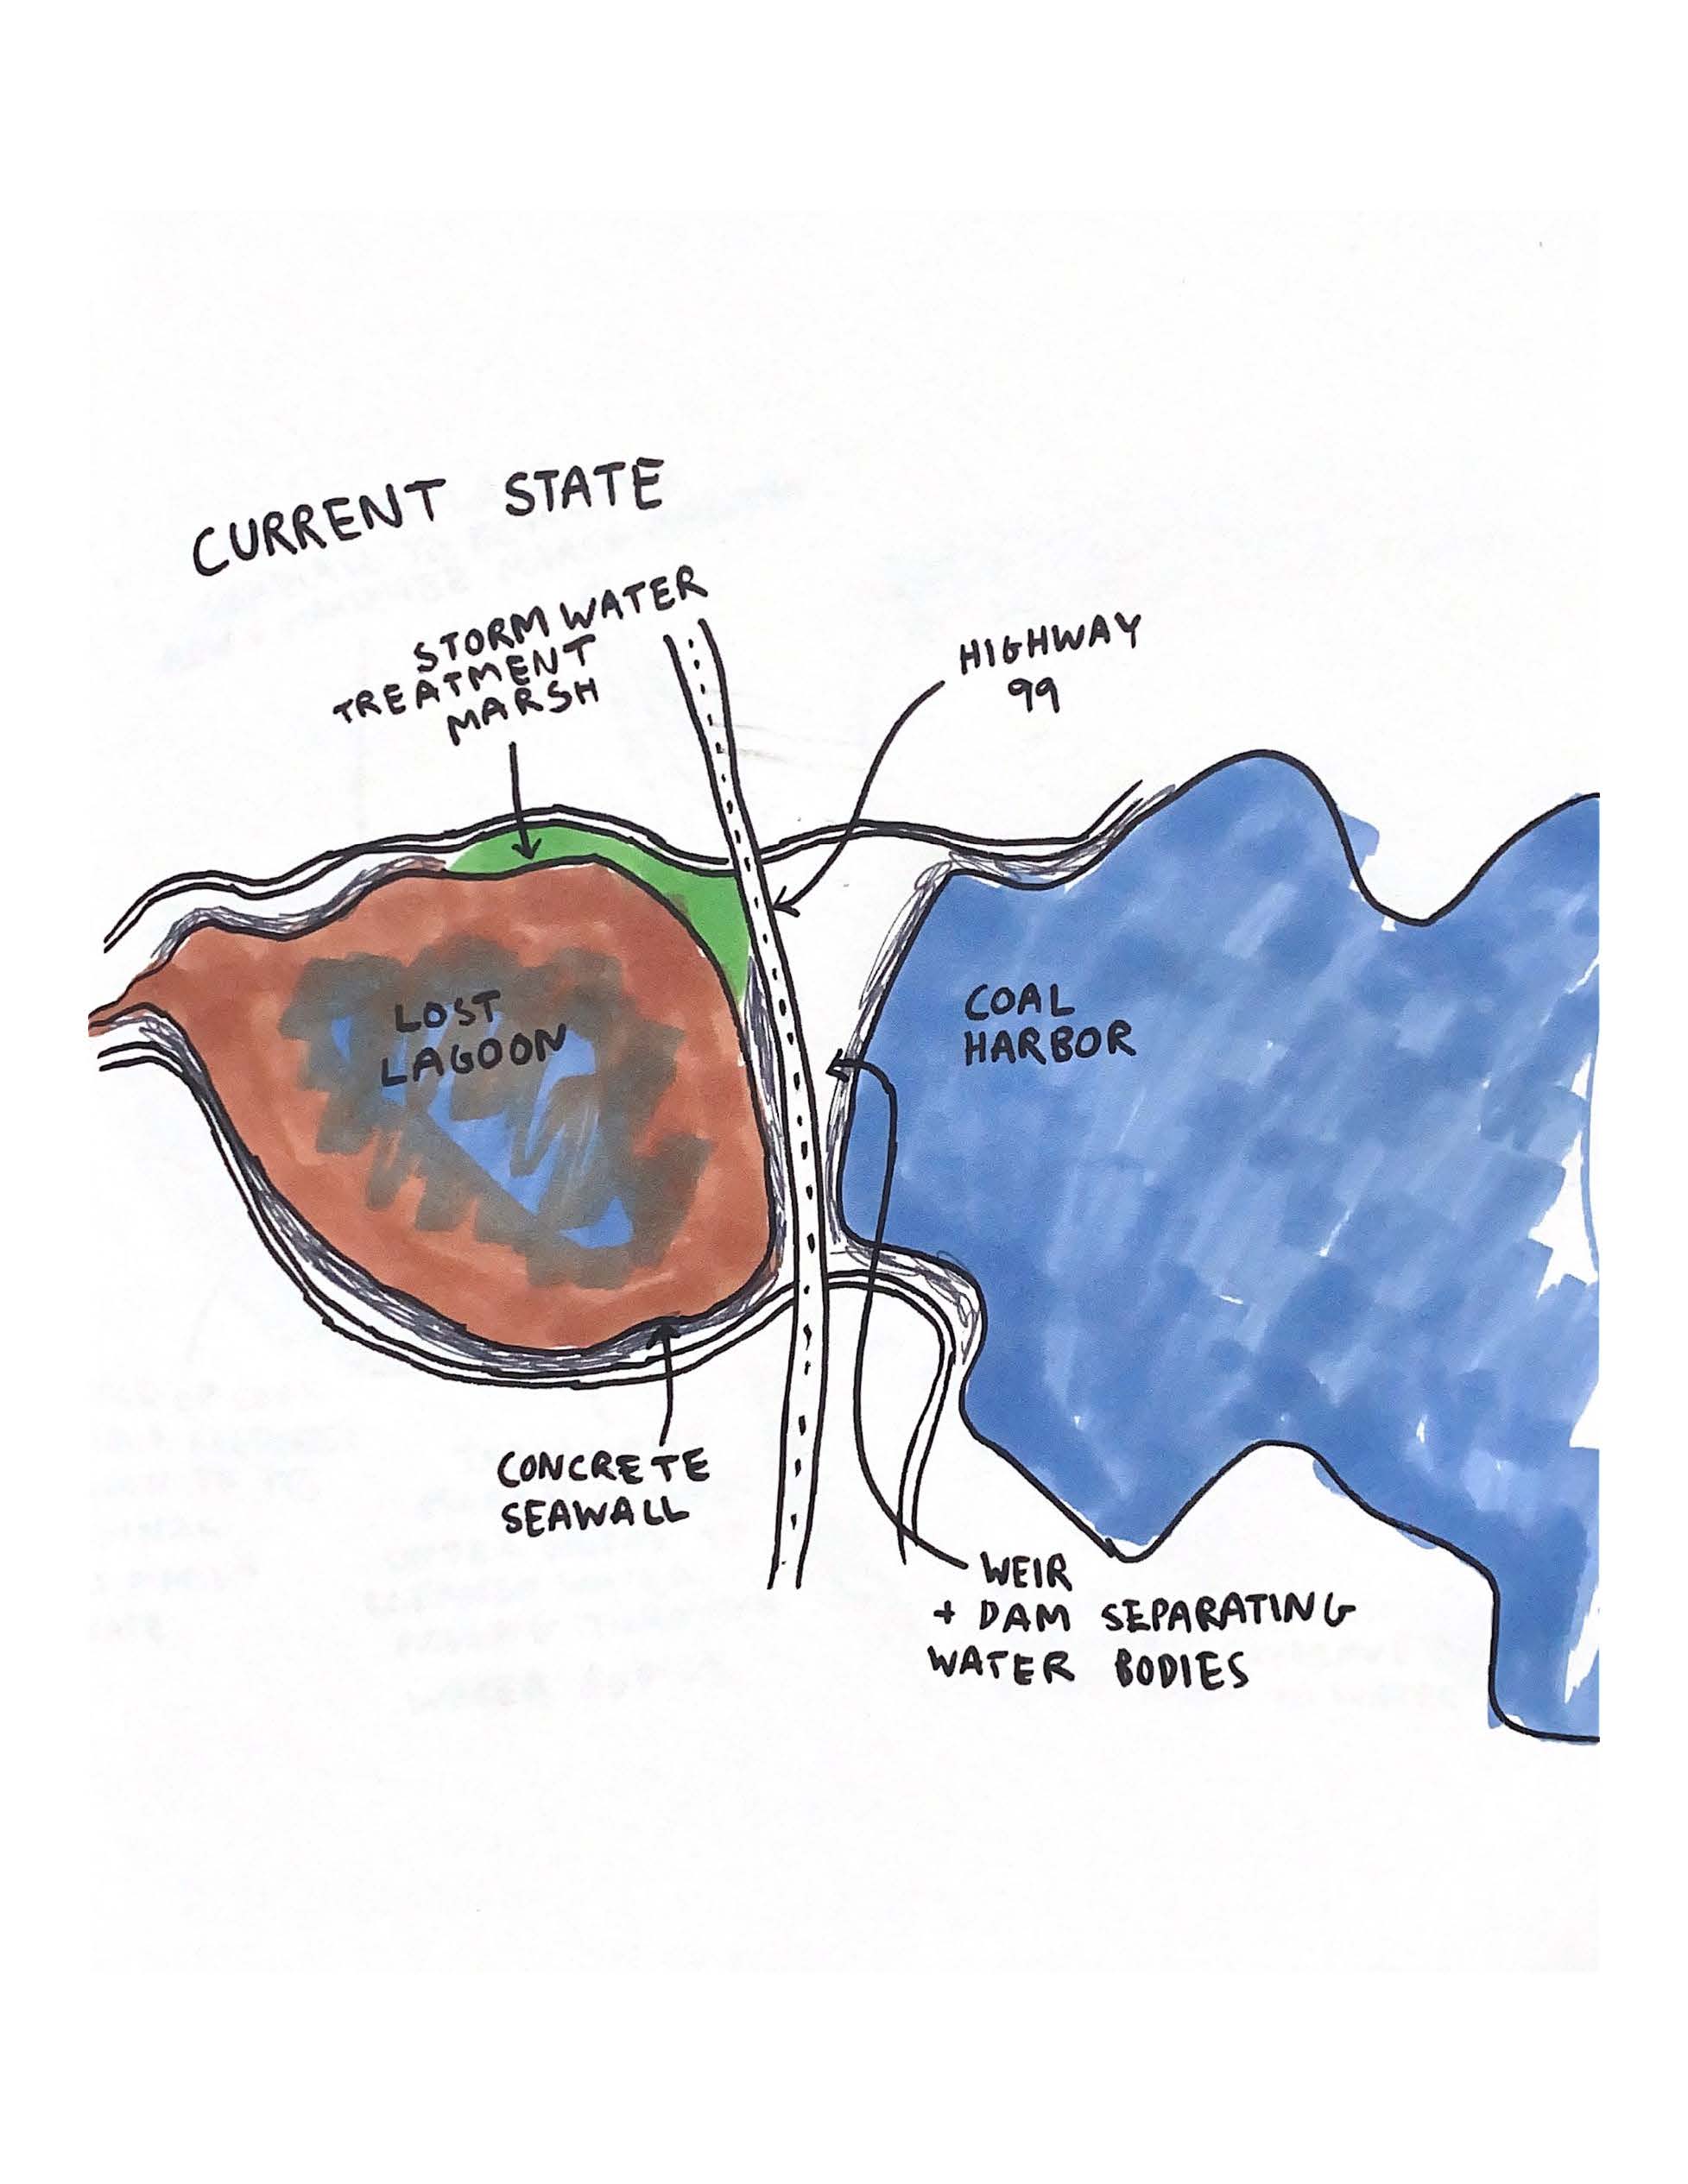 CURRENT STATE
STORM WATER
TREATMENT
MARSH
HIGHWAY
99
LOST
LAGOON
COAL
HARBOR
CONCRETE
SEAWALL
WEIR
+ DAM SEPARATING
WATER BODIES